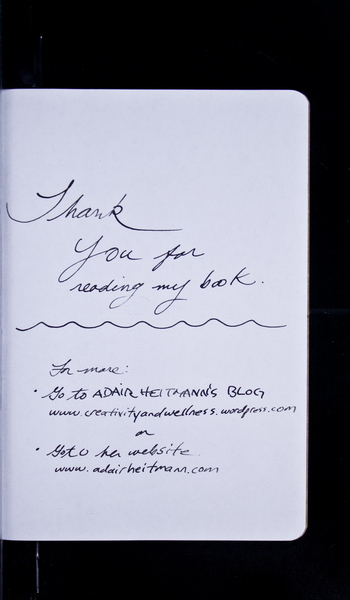 Thank
You for
reading my book.
For more:
• Go to ADAIR HEITMANN'S BLOG
www.creativityandwellness.wordpress.com
or
• Go to her website
www.adairheitmann.com